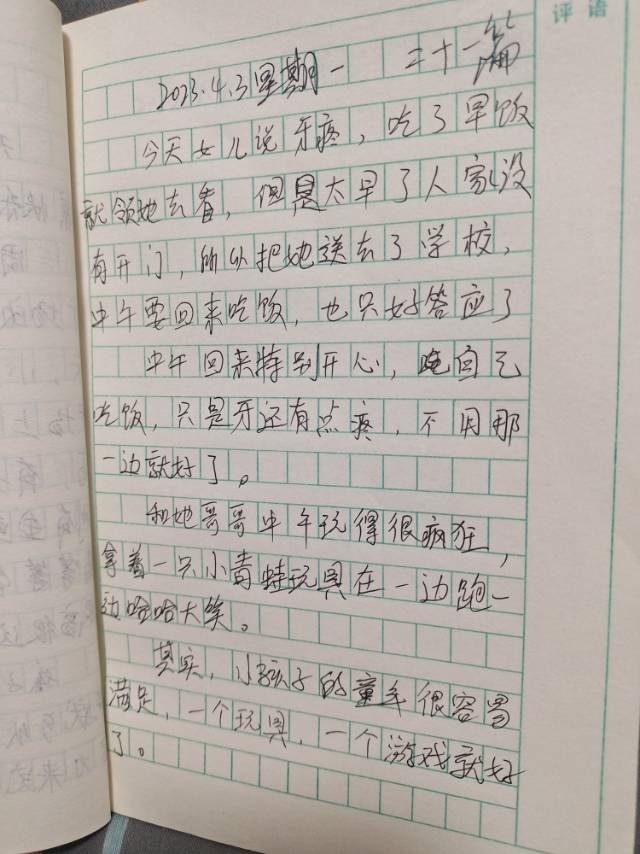 评语
2023.4.3星期一 二十一篇
今天女儿说牙疼，吃了早饭
就领她去看，但是太早了人家没
有开门，所以把她送去了学校，
中午要回来吃饭，也只好答应了
中午回来特别开心，自己
吃饭，只是牙还有点疼，不用那
一边就好了。
和她哥哥中午玩得很疯狂，
拿着一只小青蛙玩具在一边跑一
边哈哈大笑。
其实，小孩子的童年很容易
满足，一个玩具，一个游戏就好
了。